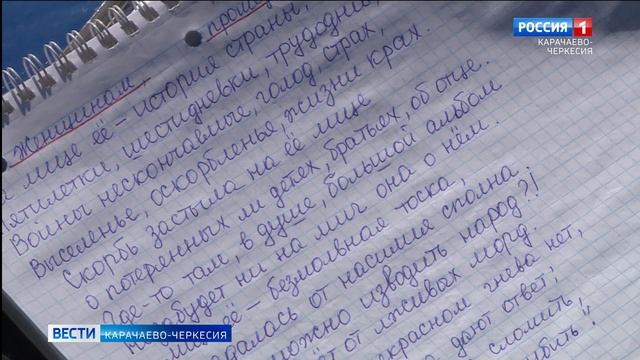 РОССИЯ 1
КАРАЧАЕВО-
ЧЕРКЕСИЯ
женщинам,
лице её – история страны,
Пятилетки, шестидневки, трудодни,
Войны нескончаемые, голод, страх,
Выселенье, оскорбленье, жизни крах.
Скорбь застыла на её лице
о потерянных ли детях, братьях, об отце.
Где-то там, в душе, большой альбом
Не забудет ни на миг она о нём.
лице её – безмолвная тоска,
от насилия сполна
можно изводить народ?!
от лживых морд.
гнева нет,
дают ответ,
сломить,
ВЕСТИ КАРАЧАЕВО-ЧЕРКЕСИЯ